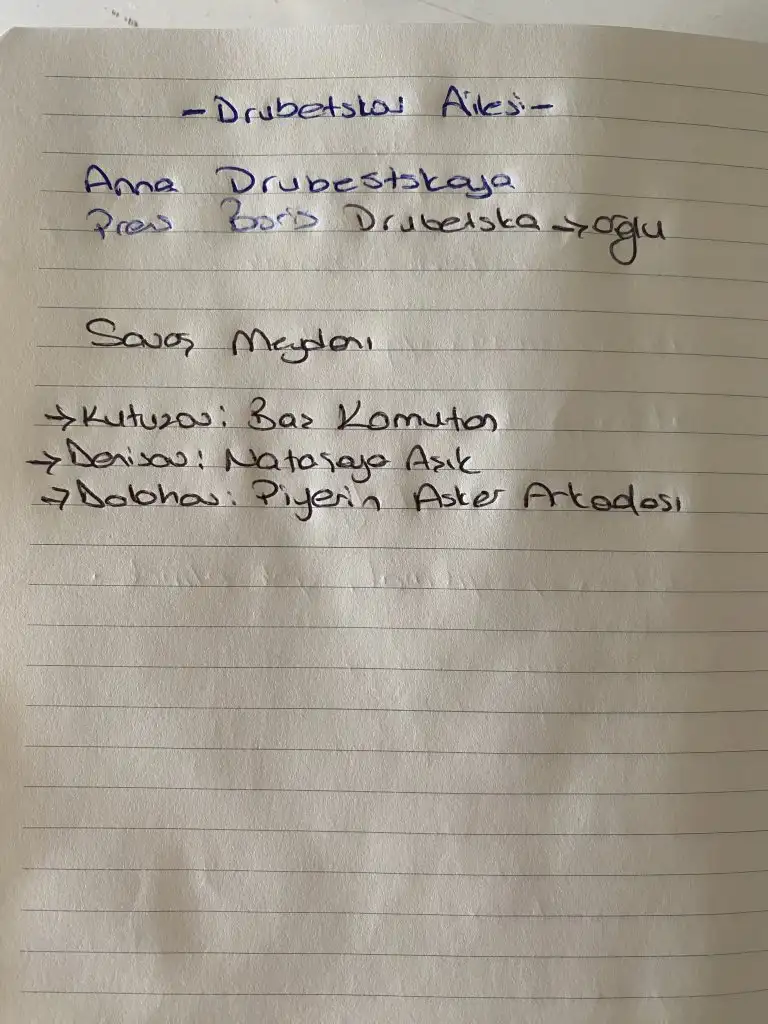 -Drubetskoy Ailesi-
Anna Drubestskaya
Prens Boris Drubetska → oğlu
Savaş Meydanı
→ Kutuzov: Baş Komutan
→ Denisov: Nataşaya Aşık
→ Dolohov: Piyerin Asker Arkadaşı